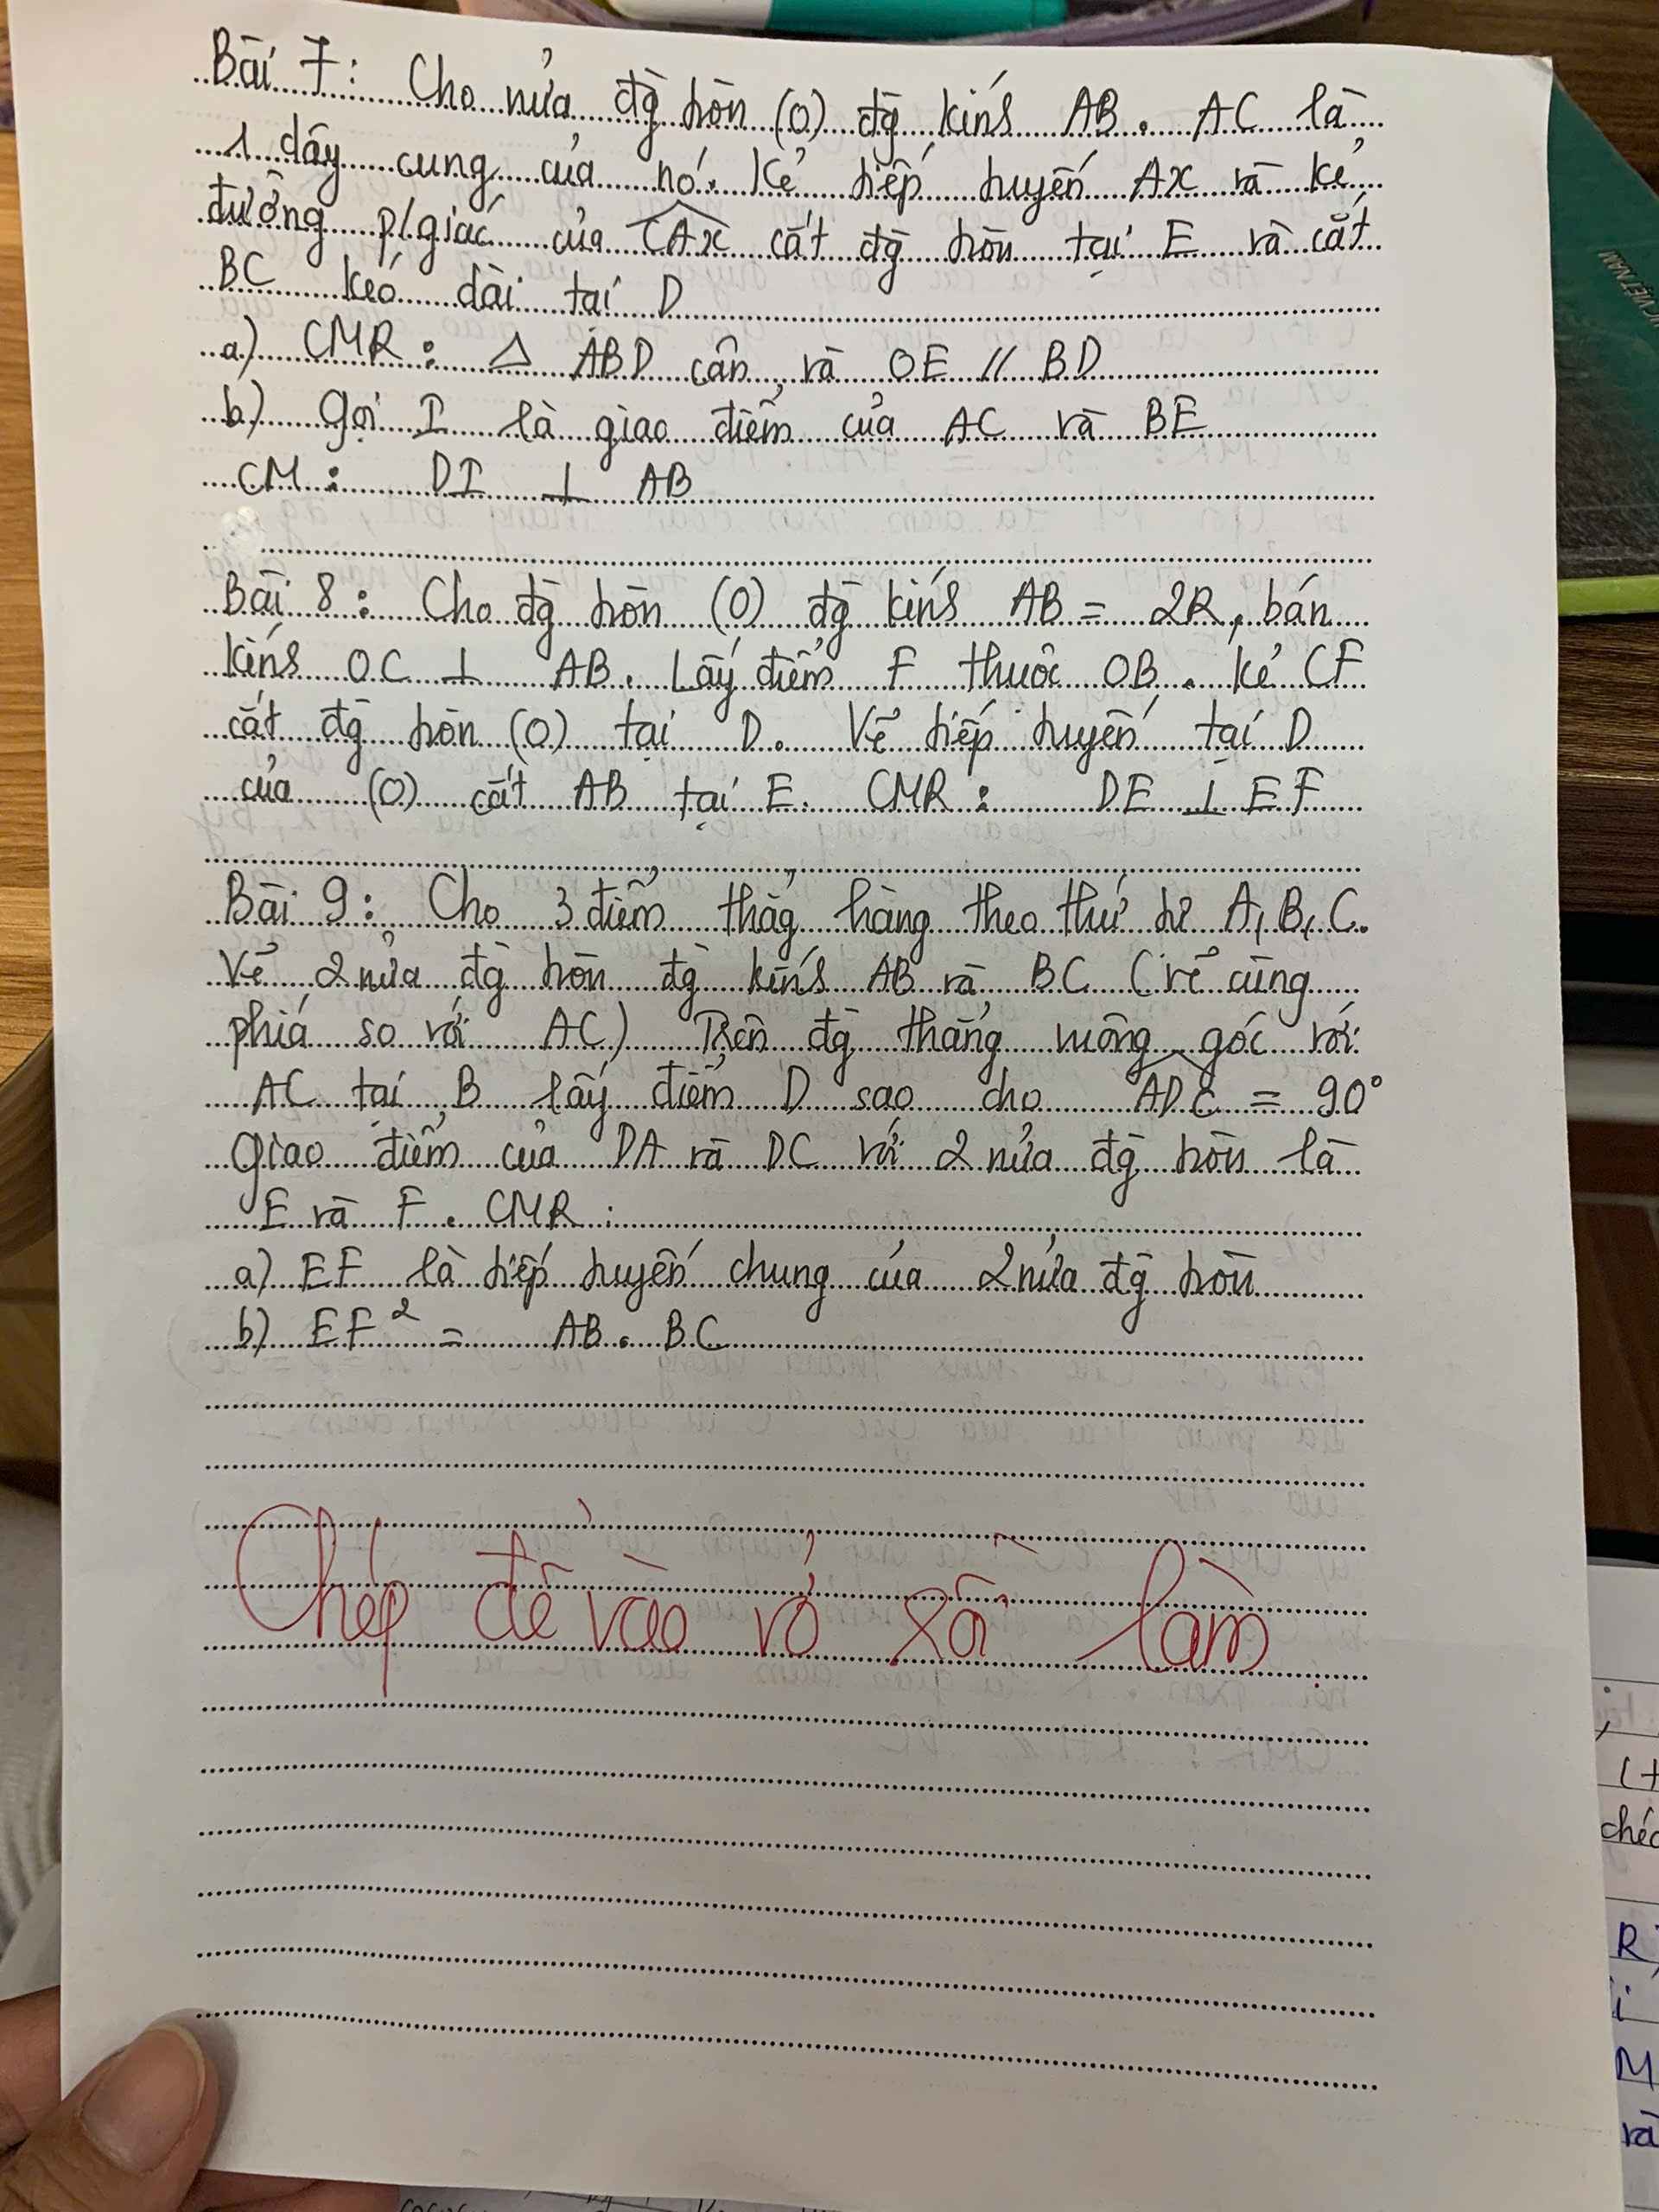 Bài 7: Cho nửa đg tròn (O) đg kính AB. AC là
1 dây cung của nó. Kẻ tiếp tuyến Ax và kẻ
đường p/giác của CAx cắt đg tròn tại E và cắt
BC kéo dài tại D
a) CMR: △ ABD cân và OE // BD
b) Gọi I là giao điểm của AC và BE
CM: DI ⊥ AB
Bài 8: Cho đg tròn (O) đg kính AB = 2R, bán
kính OC ⊥ AB. Lấy điểm F thuộc OB. kẻ CF
cắt đg tròn (O) tại D. Vẽ tiếp tuyến tại D
của (O) cắt AB tại E. CMR: DE ⊥ EF
Bài 9: Cho 3 điểm thẳg hàng theo thứ tự A, B, C.
Vẽ 2 nửa đg tròn đg kính AB và BC (vẽ cùng
phía so với AC) Trên đg thẳng vuông góc với
AC tại B lấy điểm D sao cho ADC = 90°
Giao điểm của DA và DC với 2 nửa đg tròn là
E và F. CMR:
a) EF là tiếp tuyến chung của 2 nửa đg tròn
b) EF² = AB. BC
Chép đề vào vở rồi làm
VIỆT NAM
(+
chéo
R
i
M
và